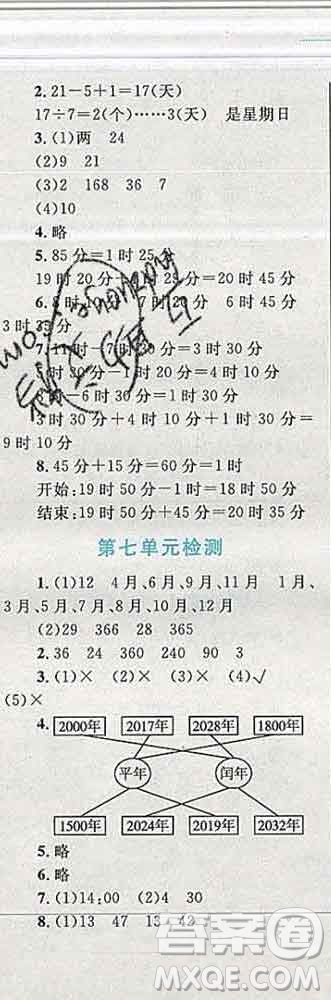 2. 21－5＋1＝17(天)
17÷7＝2(个)……3(天) 是星期日
3. (1)两 24
(2)9 21
(3)2 168 36 7
(4)10
4. 略
5. 85分＝1时25分
19时20分＋25分＝19时45分
6. 8时30分 17时20分 6时45分
3时35分
7. 11时－7时30分
5时30分－1时
－6时30分＝1时30分
3时30分＋4时10分＋1时30分＝
9时10分
8. 45分＋15分＝60分＝1时
开始：19时50分－1时＝18时50分
结束：19时50分＋45分＝20时35分
第七单元检测
1. (1)12 4月、6月、9月、11月 1月、
3月、5月、7月、8月、10月、12月
(2)29 366 28 365
2. 36 24 360 240 90 3
3. (1)× (2)× (3)× (4)√
(5)×
4. 2000年 2017年 2028年 1800年
平年 闰年
1500年 2024年 2019年 2032年
5. 略
6. 略
7. (1)14:00 (2)4 30
8. (1)13 47 13 42
答案圈
MXQE.COM